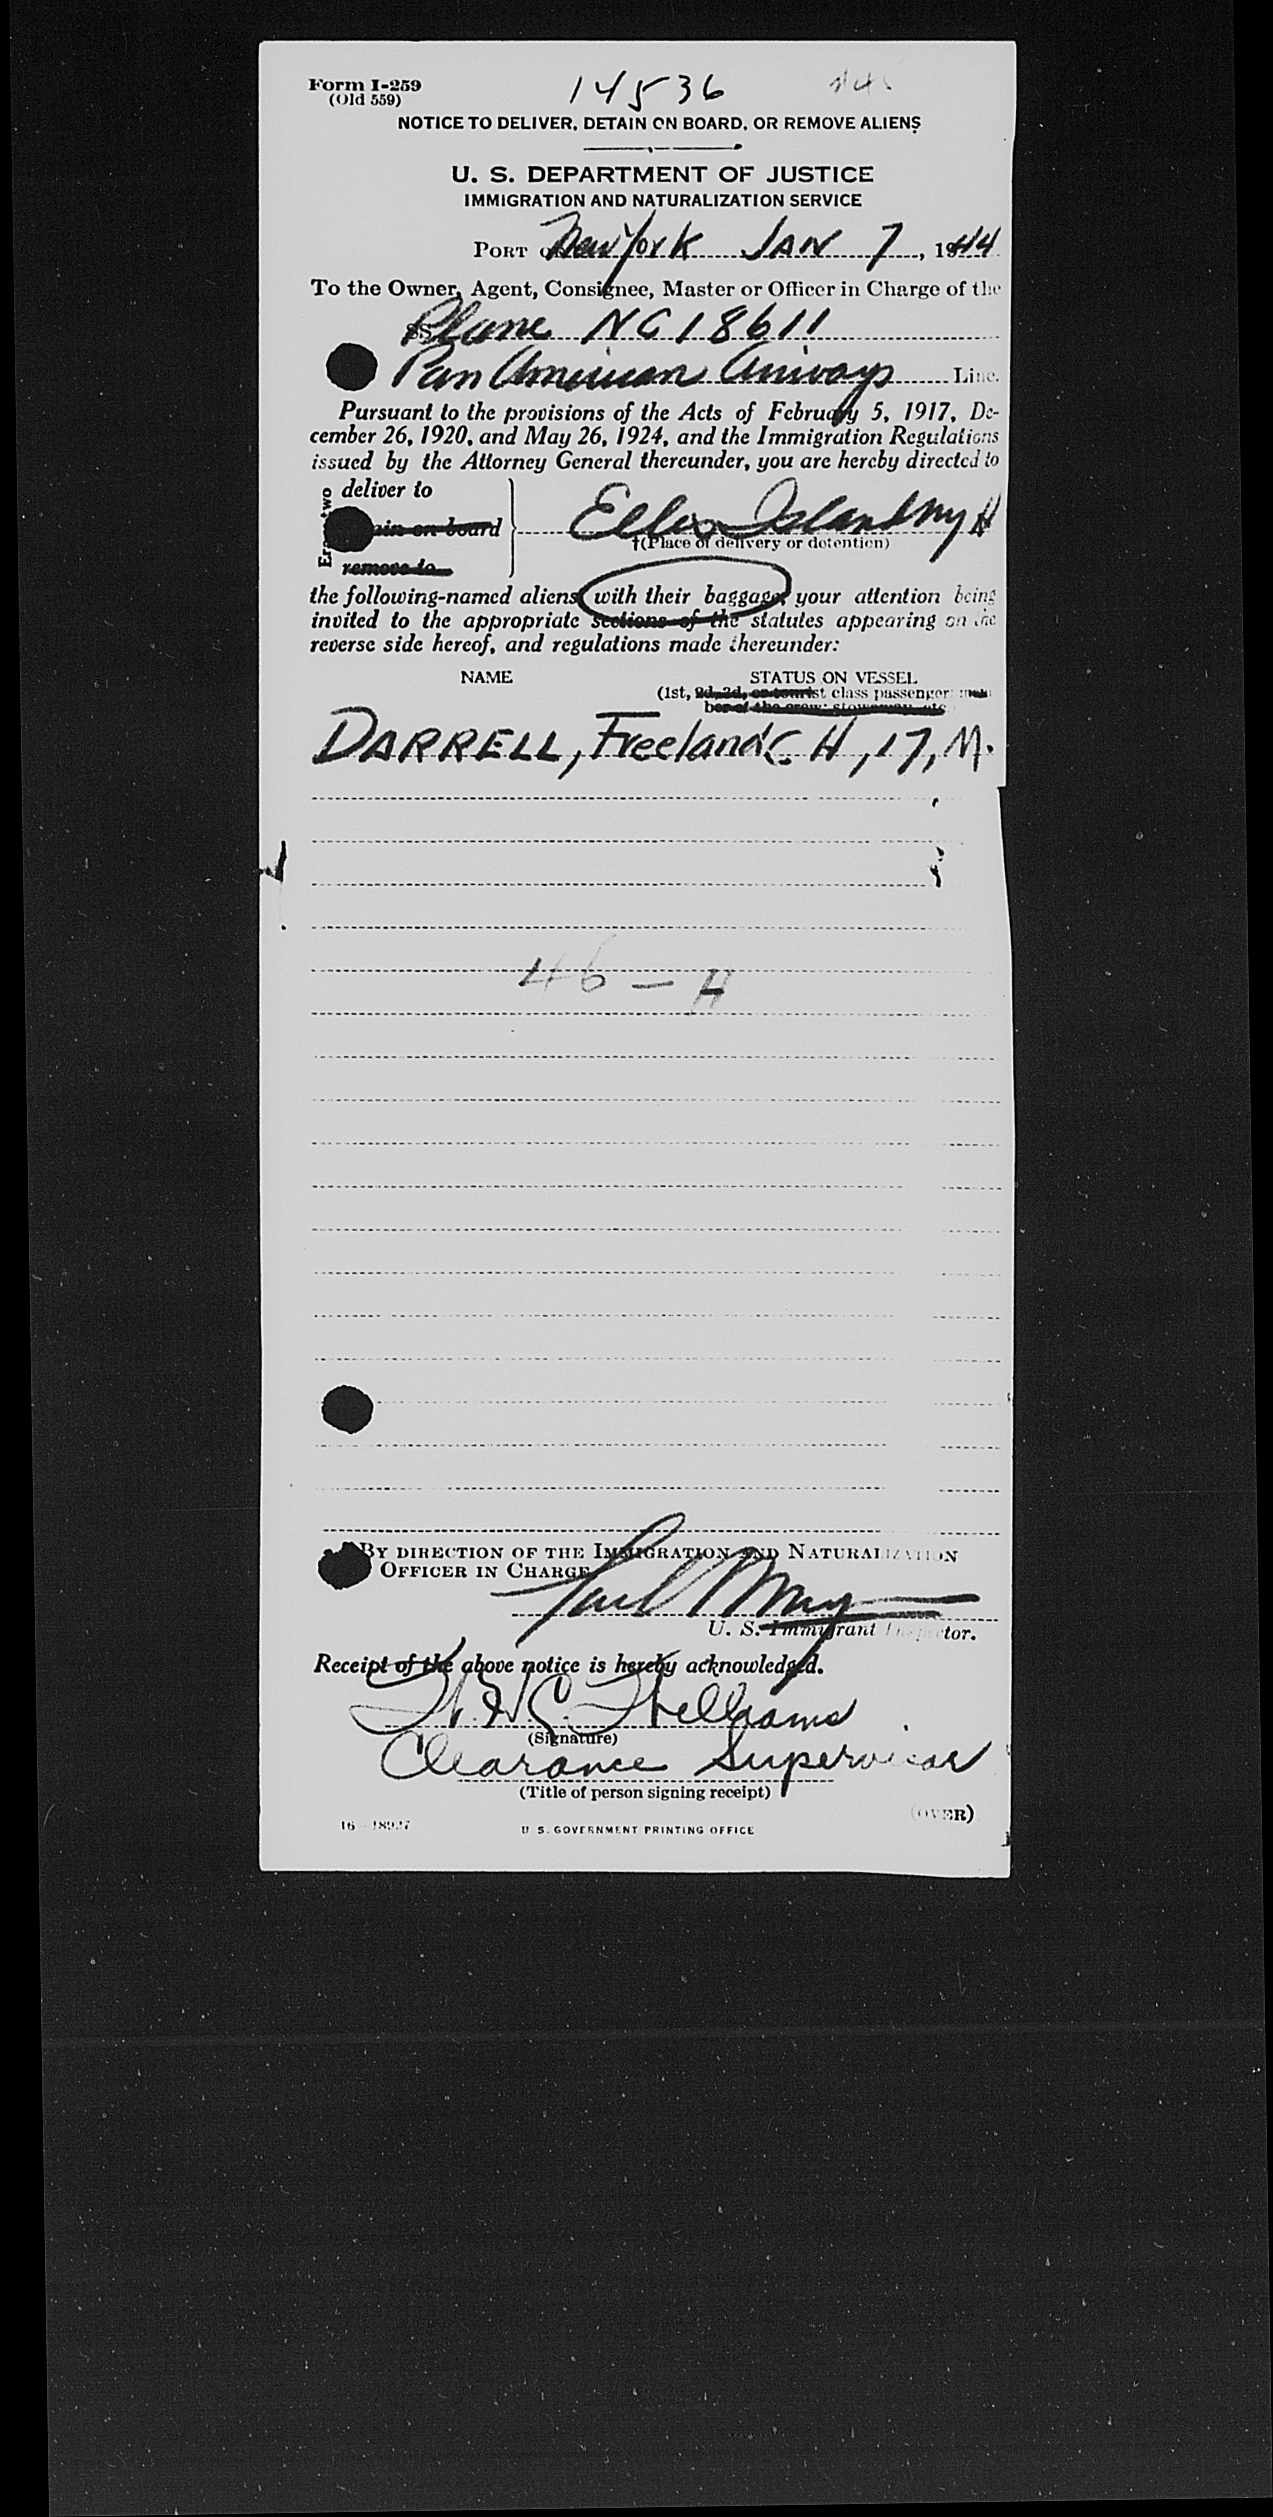 Form I-259
(Old 559)
14536
NOTICE TO DELIVER, DETAIN ON BOARD, OR REMOVE ALIENS
U. S. DEPARTMENT OF JUSTICE
IMMIGRATION AND NATURALIZATION SERVICE
PORT OF New York JAN 7, 1944
To the Owner, Agent, Consignee, Master or Officer in Charge of the
SS Plane NC 18611
Pan American Airways Line.
Pursuant to the provisions of the Acts of February 5, 1917, De-
cember 26, 1920, and May 26, 1924, and the Immigration Regulations
issued by the Attorney General thereunder, you are hereby directed to
deliver to
on board
Ellis Island NY H
†(Place of delivery or detention)
two
remove to
the following-named aliens with their baggage, your attention being
invited to the appropriate sections of the statutes appearing on the
reverse side hereof, and regulations made thereunder:
NAME STATUS ON VESSEL
(1st, 2d, 3d, or tourist class passenger; mem-
ber of the crew; stowaway, etc.
DARRELL, Freeland C. H, 17, M.
46 - H
BY DIRECTION OF THE IMMIGRATION AND NATURALIZATION
OFFICER IN CHARGE
U. S. Immigrant Inspector.
Receipt of the above notice is hereby acknowledged.
Williams
(Signature)
Clearance Supervisor
(Title of person signing receipt)
(OVER)
16-18927 U. S. GOVERNMENT PRINTING OFFICE